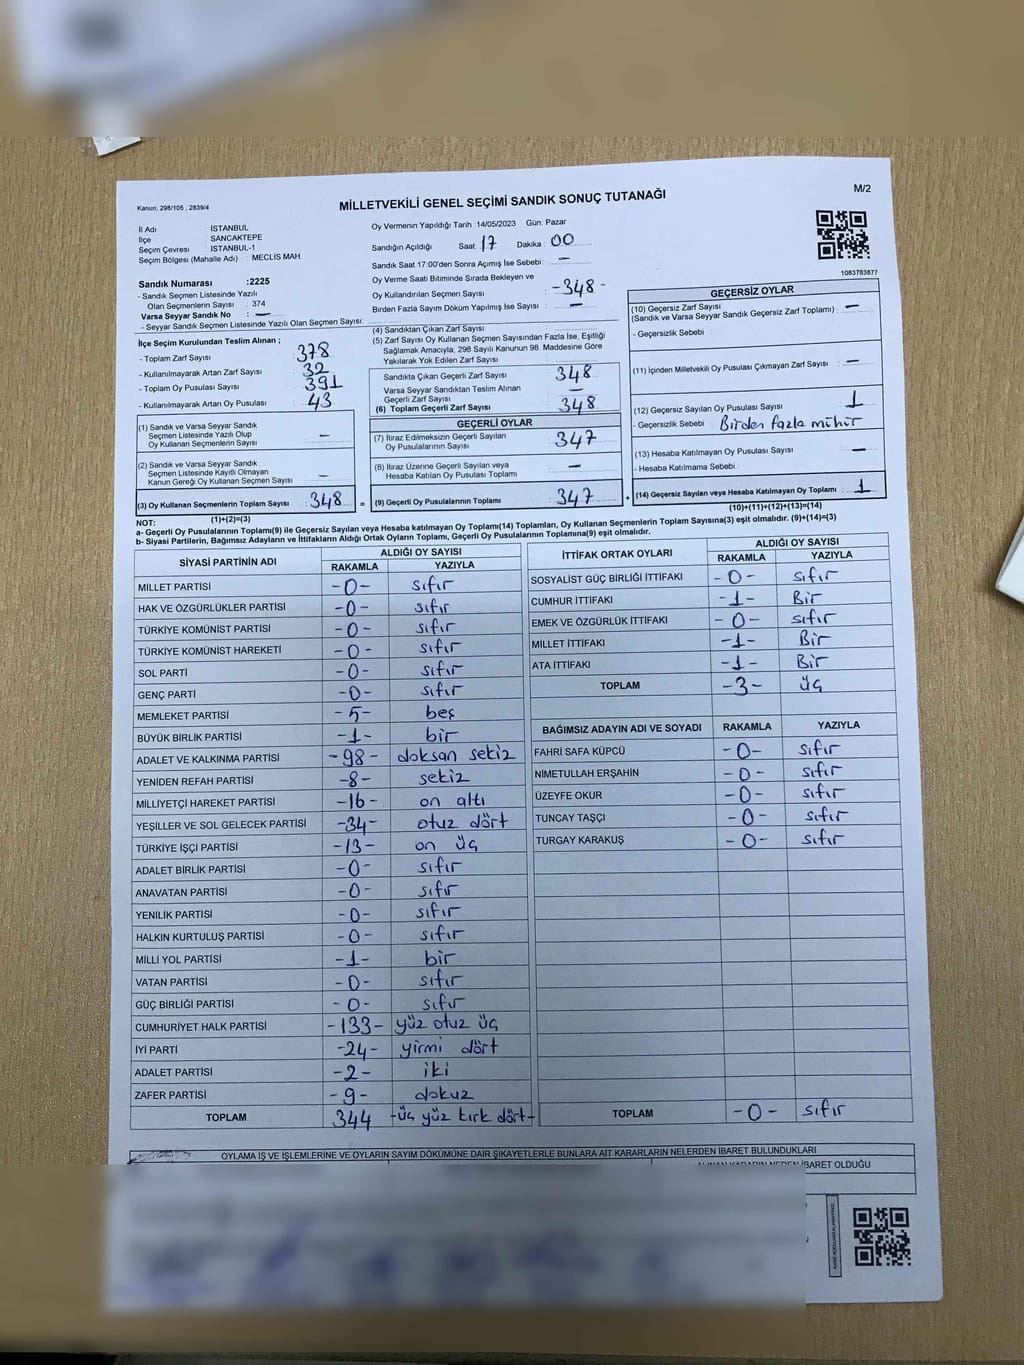 M/2
Kanun; 298/105 ; 2839/4
MİLLETVEKİLİ GENEL SEÇİMİ SANDIK SONUÇ TUTANAĞI
İl Adı : İSTANBUL
İlçe : SANCAKTEPE
Seçim Çevresi : İSTANBUL-1
Seçim Bölgesi (Mahalle Adı) : MECLİS MAH.
Oy Vermenin Yapıldığı Tarih :14/05/2023 Gün: Pazar
Sandığın Açıldığı Saat: 17 Dakika : 00
Sandık Saat 17:00'den Sonra Açılmış İse Sebebi : —
Oy Verme Saati Bitiminde Sırada Bekleyen ve
Oy Kullandırılan Seçmen Sayısı : -348-
Birden Fazla Sayım Döküm Yapılmış İse Sayısı : —
1083783877
Sandık Numarası :2225
- Sandık Seçmen Listesinde Yazılı
Olan Seçmenlerin Sayısı : 374
Varsa Seyyar Sandık No : —
- Seyyar Sandık Seçmen Listesinde Yazılı Olan Seçmen Sayısı:
İlçe Seçim Kurulundan Teslim Alınan ;
- Toplam Zarf Sayısı : 378
- Kullanılmayarak Artan Zarf Sayısı : 32
- Toplam Oy Pusulası Sayısı : 391
- Kullanılmayarak Artan Oy Pusulası : 43
(1) Sandık ve Varsa Seyyar Sandık
Seçmen Listesinde Yazılı Olup
Oy Kullanan Seçmenlerin Sayısı : —
(2) Sandık ve Varsa Seyyar Sandık
Seçmen Listesinde Kayıtlı Olmayan
Kanun Gereği Oy Kullanan Seçmen Sayısı : —
(3) Oy Kullanan Seçmenlerin Toplam Sayısı : 348 =
(1)+(2)=(3)
(4) Sandıktan Çıkan Zarf Sayısı :
(5) Zarf Sayısı Oy Kullanan Seçmen Sayısından Fazla İse, Eşitliği
Sağlamak Amacıyla, 298 Sayılı Kanunun 98. Maddesine Göre
Yakılarak Yok Edilen Zarf Sayısı :
Sandıkta Çıkan Geçerli Zarf Sayısı : 348
Varsa Seyyar Sandıktan Teslim Alınan
Geçerli Zarf Sayısı : —
(6) Toplam Geçerli Zarf Sayısı : 348
GEÇERLİ OYLAR
(7) İtiraz Edilmeksizin Geçerli Sayılan
Oy Pusulalarının Sayısı : 347
(8) İtiraz Üzerine Geçerli Sayılan veya
Hesaba Katılan Oy Pusulası Toplamı : —
(9) Geçerli Oy Pusulalarının Toplamı : 347 +
GEÇERSİZ OYLAR
(10) Geçersiz Zarf Sayısı
(Sandık ve Varsa Seyyar Sandık Geçersiz Zarf Toplamı) : —
- Geçersizlik Sebebi :
(11) İçinden Milletvekili Oy Pusulası Çıkmayan Zarf Sayısı : —
(12) Geçersiz Sayılan Oy Pusulası Sayısı : 1
- Geçersizlik Sebebi : Birden fazla mühür
(13) Hesaba Katılmayan Oy Pusulası Sayısı : —
- Hesaba Katılmama Sebebi :
(14) Geçersiz Sayılan veya Hesaba Katılmayan Oy Toplamı : 1
(10)+(11)+(12)+(13)=(14)
NOT:
a- Geçerli Oy Pusulalarının Toplamı(9) ile Geçersiz Sayılan veya Hesaba katılmayan Oy Toplamı(14) Toplamları, Oy Kullanan Seçmenlerin Toplam Sayısına(3) eşit olmalıdır. (9)+(14)=(3)
b- Siyasi Partilerin, Bağımsız Adayların ve İttifakların Aldığı Ortak Oyların Toplamı, Geçerli Oy Pusulalarının Toplamına(9) eşit olmalıdır.
SİYASİ PARTİNİN ADI ALDIĞI OY SAYISI
RAKAMLA YAZIYLA
MİLLET PARTİSİ -0- sıfır
HAK VE ÖZGÜRLÜKLER PARTİSİ -0- sıfır
TÜRKİYE KOMÜNİST PARTİSİ -0- sıfır
TÜRKİYE KOMÜNİST HAREKETİ -0- sıfır
SOL PARTİ -0- sıfır
GENÇ PARTİ -0- sıfır
MEMLEKET PARTİSİ -5- beş
BÜYÜK BİRLİK PARTİSİ -1- bir
ADALET VE KALKINMA PARTİSİ -98- doksan sekiz
YENİDEN REFAH PARTİSİ -8- sekiz
MİLLİYETÇİ HAREKET PARTİSİ -16- on altı
YEŞİLLER VE SOL GELECEK PARTİSİ -34- otuz dört
TÜRKİYE İŞÇİ PARTİSİ -13- on üç
ADALET BİRLİK PARTİSİ -0- sıfır
ANAVATAN PARTİSİ -0- sıfır
YENİLİK PARTİSİ -0- sıfır
HALKIN KURTULUŞ PARTİSİ -0- sıfır
MİLLİ YOL PARTİSİ -1- bir
VATAN PARTİSİ -0- sıfır
GÜÇ BİRLİĞİ PARTİSİ -0- sıfır
CUMHURİYET HALK PARTİSİ -133- yüz otuz üç
İYİ PARTİ -24- yirmi dört
ADALET PARTİSİ -2- iki
ZAFER PARTİSİ -9- dokuz
TOPLAM 344 -üç yüz kırk dört-
İTTİFAK ORTAK OYLARI ALDIĞI OY SAYISI
RAKAMLA YAZIYLA
SOSYALİST GÜÇ BİRLİĞİ İTTİFAKI -0- sıfır
CUMHUR İTTİFAKI -1- Bir
EMEK VE ÖZGÜRLÜK İTTİFAKI -0- sıfır
MİLLET İTTİFAKI -1- Bir
ATA İTTİFAKI -1- Bir
TOPLAM -3- üç
BAĞIMSIZ ADAYIN ADI VE SOYADI RAKAMLA YAZIYLA
FAHRİ SAFA KÜPCÜ -0- sıfır
NİMETULLAH ERŞAHİN -0- sıfır
ÜZEYFE OKUR -0- sıfır
TUNCAY TAŞÇI -0- sıfır
TURGAY KARAKUŞ -0- sıfır
TOPLAM -0- sıfır
OYLAMA İŞ VE İŞLEMLERİNE VE OYLARIN SAYIM DÖKÜMÜNE DAİR ŞİKAYETLERLE BUNLARA AİT KARARLARIN NELERDEN İBARET BULUNDUKLARI
ALINAN KARARIN NEDEN İBARET OLDUĞU